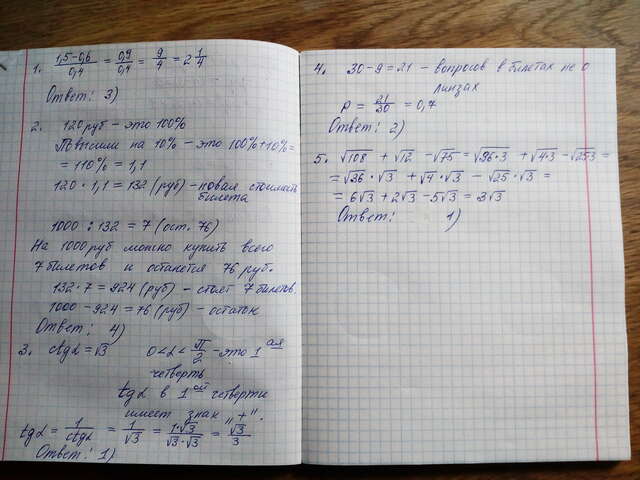 1. (1,5-0,6)/0,4 = 0,9/0,4 = 9/4 = 2 1/4
Ответ: 3)
2. 120 руб - это 100%
Повысили на 10% - это 100%+10%=
= 110% = 1,1
120 · 1,1 = 132 (руб) - новая стоимость
билета
1000 : 132 = 7 (ост. 76)
На 1000 руб можно купить всего
7 билетов и останется 76 руб.
132·7 = 924 (руб) - стоят 7 билетов
1000 - 924 = 76 (руб) - остаток
Ответ: 4)
3. ctgα = √3 0<α<π/2 - это 1 ая
четверть
tgα в 1 ой четверти
имеет знак „+".
tgα = 1/ctgα = 1/√3 = 1·√3/√3·√3 = √3/3
Ответ: 1)
4. 30-9=21 - вопросов в билетах не о
линзах
p = 21/30 = 0,7
Ответ: 2)
5. √108 + √12 - √75 = √36·3 + √4·3 - √25·3 =
= √36 · √3 + √4 · √3 - √25 · √3 =
= 6√3 + 2√3 - 5√3 = 3√3
Ответ: 1)